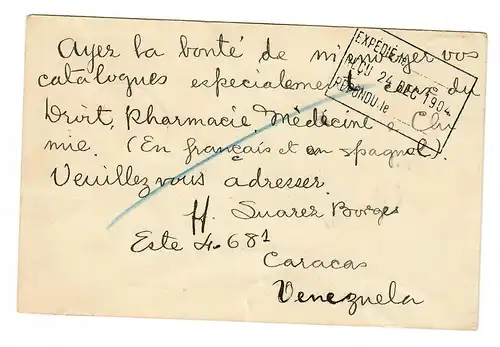 Ayez la bonté de m'envoyer vos
catalogues especialement ceux du
Droit, Pharmacie, Médecine e Chi
mie. (En français et en spagnol).
Veuillez vous adresser.
H. Suarez Borges
Este 4-68¹
Caracas
Venezuela
EXPÉDIÉ le
REÇU 24 DEC 1904
RÉPONDU le